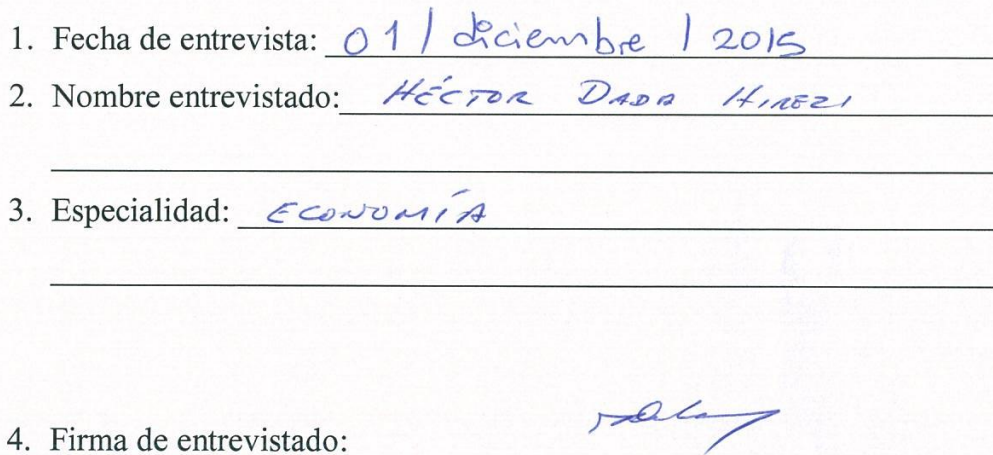 1. Fecha de entrevista: 01 / diciembre / 2015
2. Nombre entrevistado: HÉCTOR DADA HIREZI
3. Especialidad: ECONOMÍA
4. Firma de entrevistado: